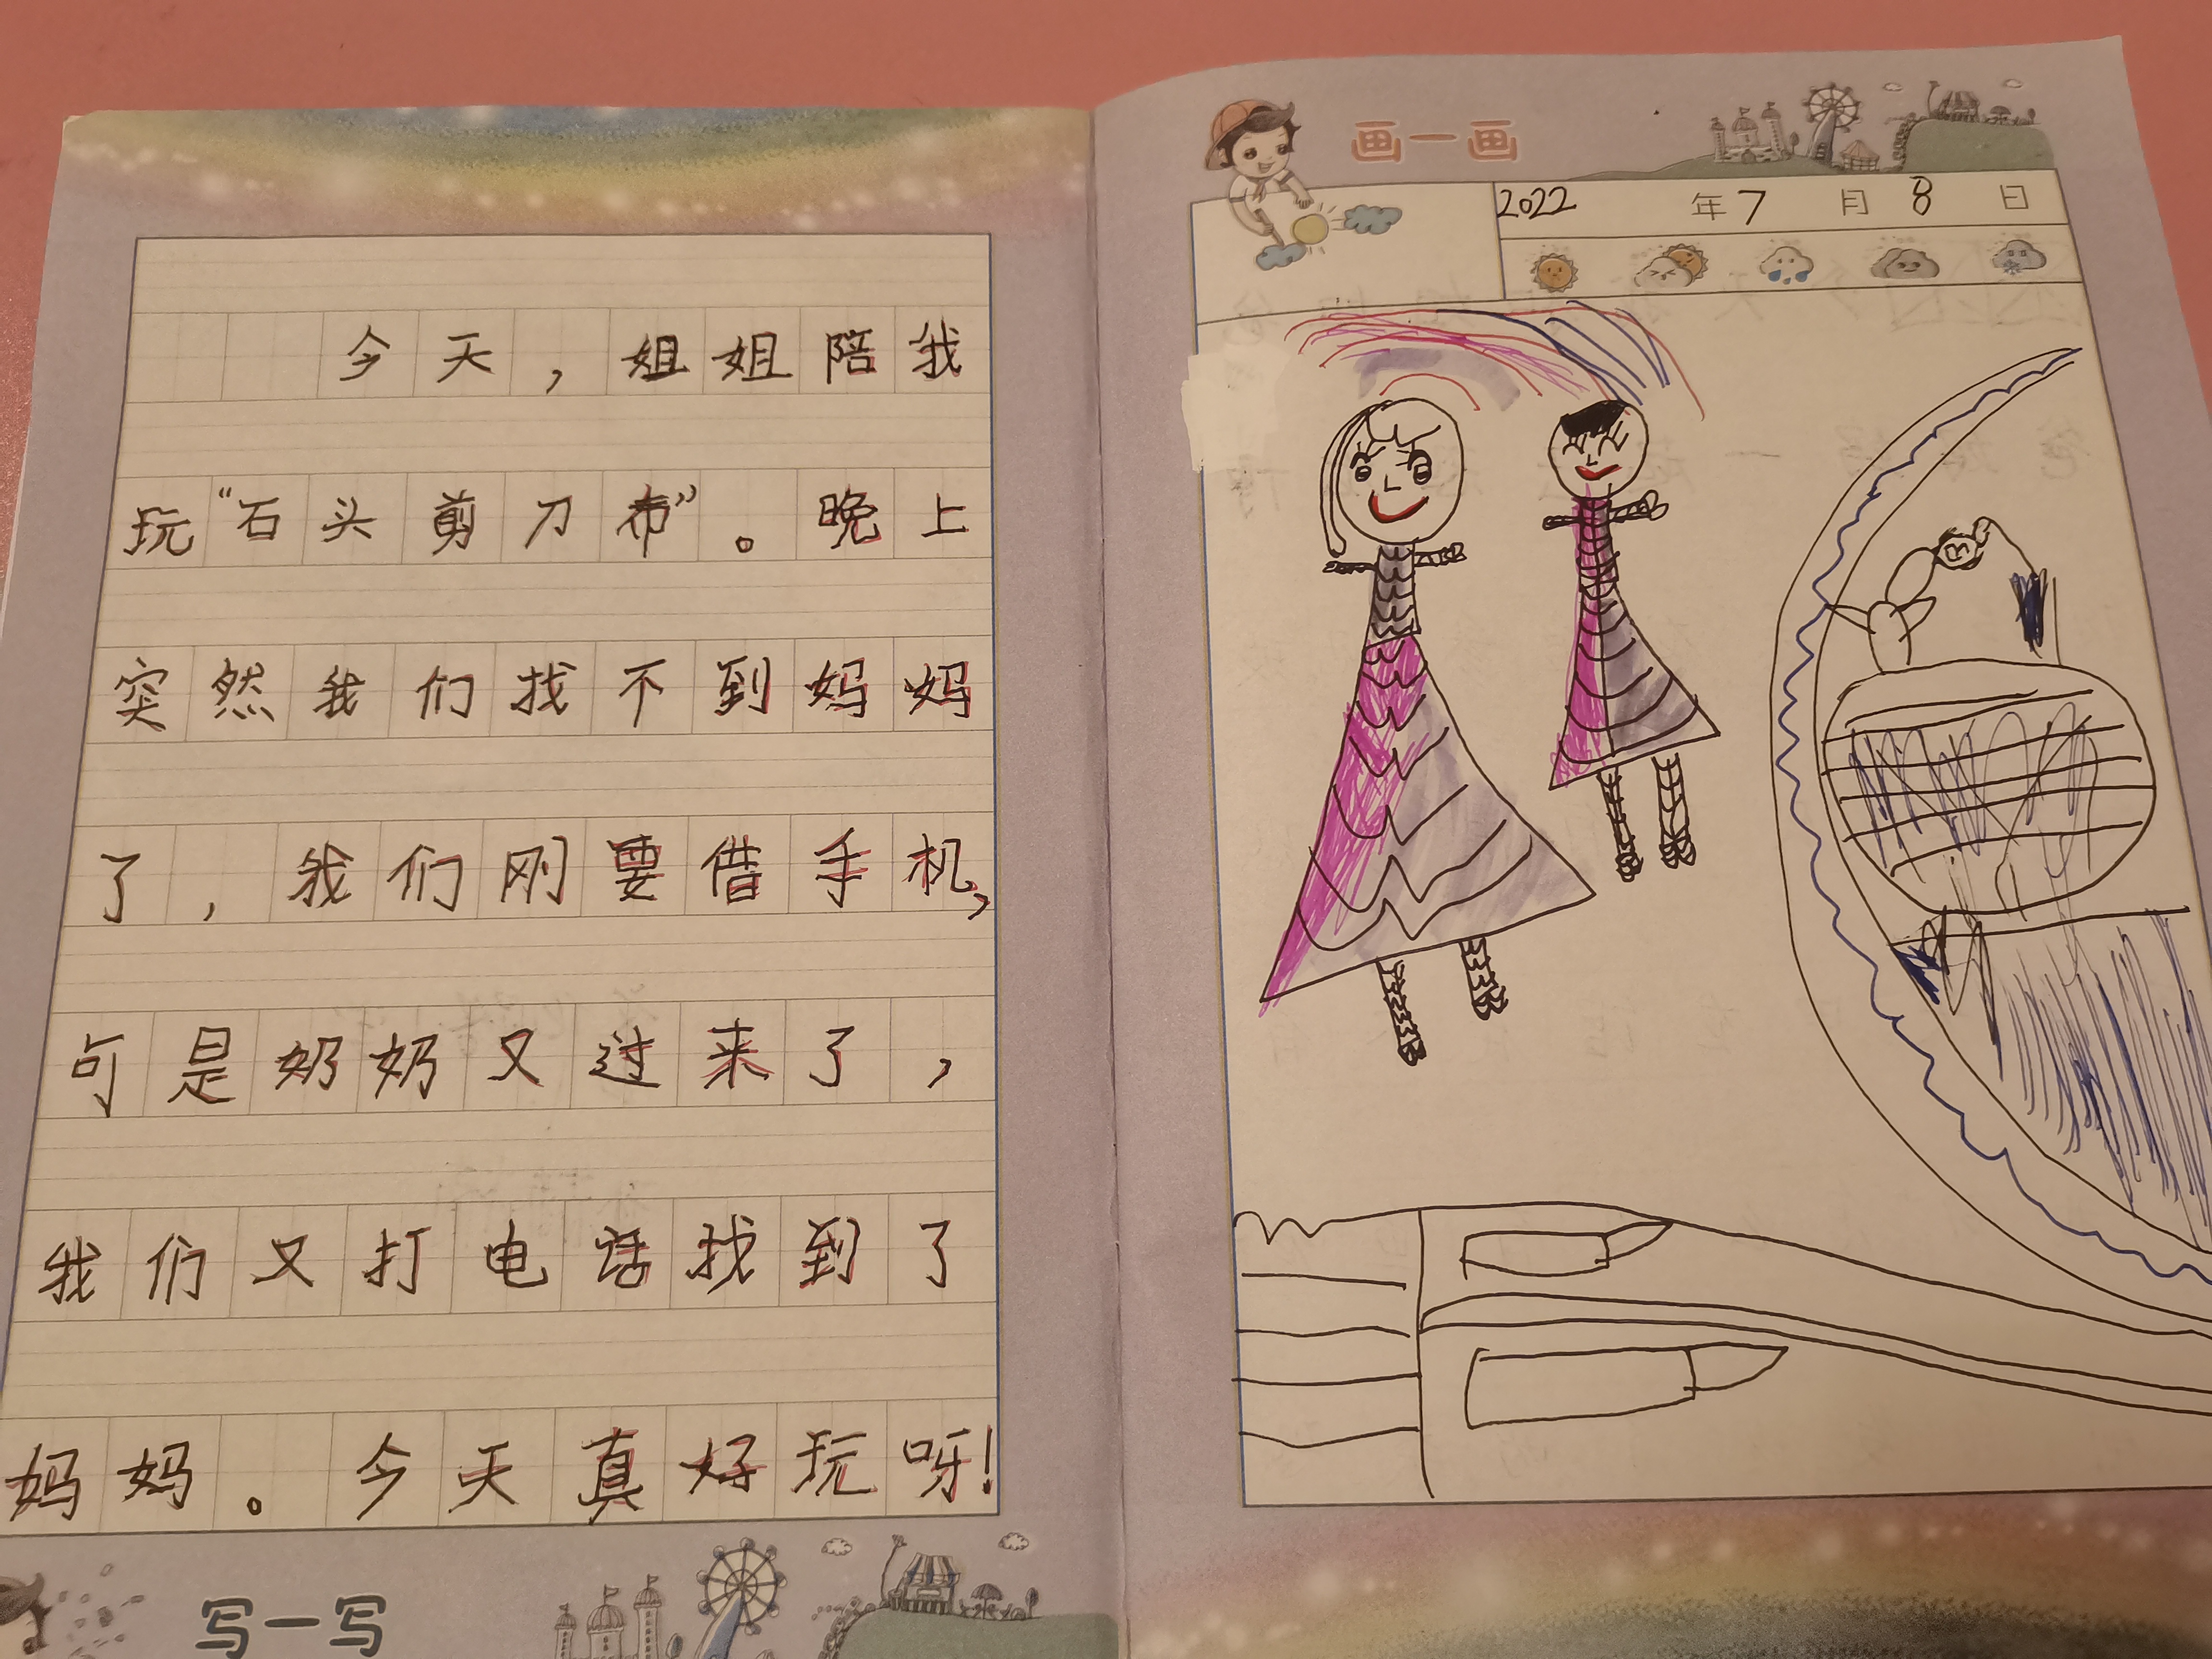 今天，姐姐陪我
玩“石头剪刀布”。晚上
突然我们找不到妈妈
了，我们刚要借手机，
可是奶奶又过来了，
我们又打电话找到了
妈妈。今天真好玩呀！
写一写
画一画
2022年7月8日